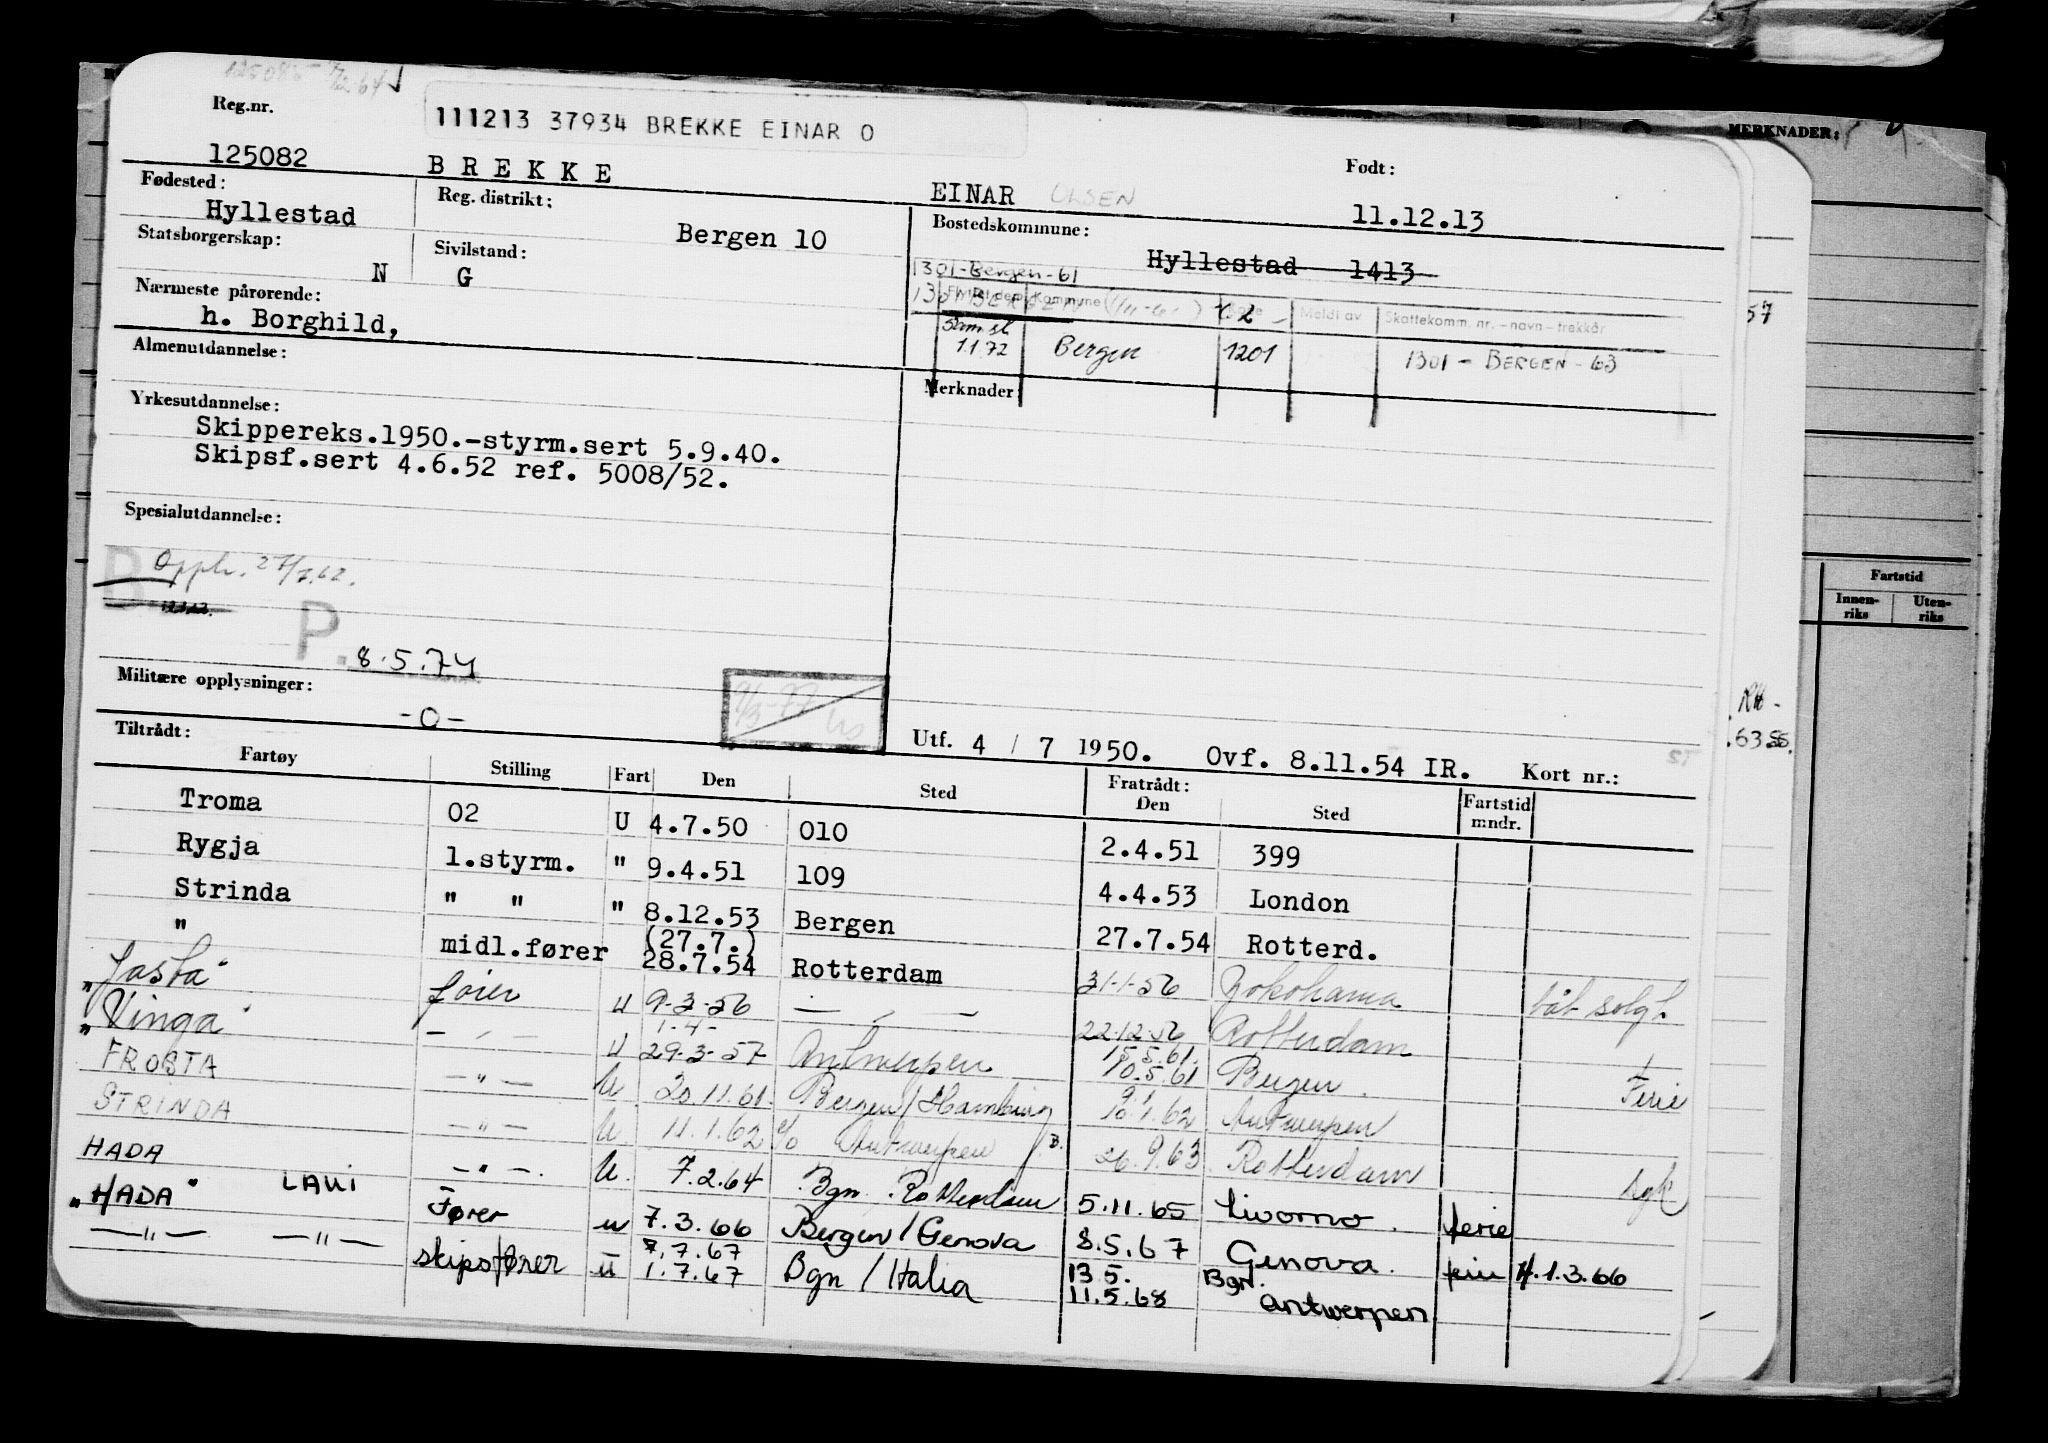 Reg.nr.
111213 37934 BREKKE EINAR O
MERKNADER:
125082 BREKKE EINAR OLSEN
Født:
11.12.13
Fødested:
Hyllestad
Reg. distrikt:
Bergen 10
Bostedskommune:
Hyllestad 1413
Statsborgerskap:
N
Sivilstand:
G
1301-Bergen-61
Nærmeste pårørende:
h. Borghild,
Kommune
Meldt av
Skattekomm. nr. - navn - trekkår
57
1.1.72 Bergen 1201 1301 - BERGEN - 63
Almenutdannelse:
Merknader
Yrkesutdannelse:
Skippereks.1950.-styrm.sert 5.9.40.
Skipsf.sert 4.6.52 ref. 5008/52.
Spesialutdannelse:
P.
8.5.74
Fartstid
Innen-
riks
Uten-
riks
Militære opplysninger:
-0-
Utf. 4 / 7 1950. Ovf. 8.11.54 IR. Kort nr.:
Tiltrådt:
Fartøy Stilling Fart Den Sted Fratrådt: Den Sted Fartstid mndr.
Troma 02 U 4.7.50 010 2.4.51 399
Rygja 1.styrm. " 9.4.51 109 4.4.53 London
Strinda " " " 8.12.53 Bergen 27.7.54 Rotterd.
" midl.fører (27.7.) 28.7.54 Rotterdam 31-1-56 Yokohama båt solgt.
"Josta" fører U 9-3-56 — " — 22-12-56 Rotterdam
"Vinga" — " — U 1-4- 29-3-57 Antwerpen 15.5.61. 10.5.61 Bergen. Ferie
FROSTA — " — U 20.11.61. Bergen/Hamburg 10.1.62 Antwerpen
STRINDA — " — U. 11.1.62 Antwerpen 26.9.63 Rotterdam
HADA — " — U. 7.2.64 Bgn. Rotterdam 5.11.65 Livorno. ferie
"HADA" LAUI Fører u 7.3.66 Bergen/Genova 8.5.67 Genova. ferie 1.3.66
— " — — " — skipsfører u 7.7.67 1.7.67 Bgn / Italia 13 5. 11.5.68 Bgn. Antwerpen